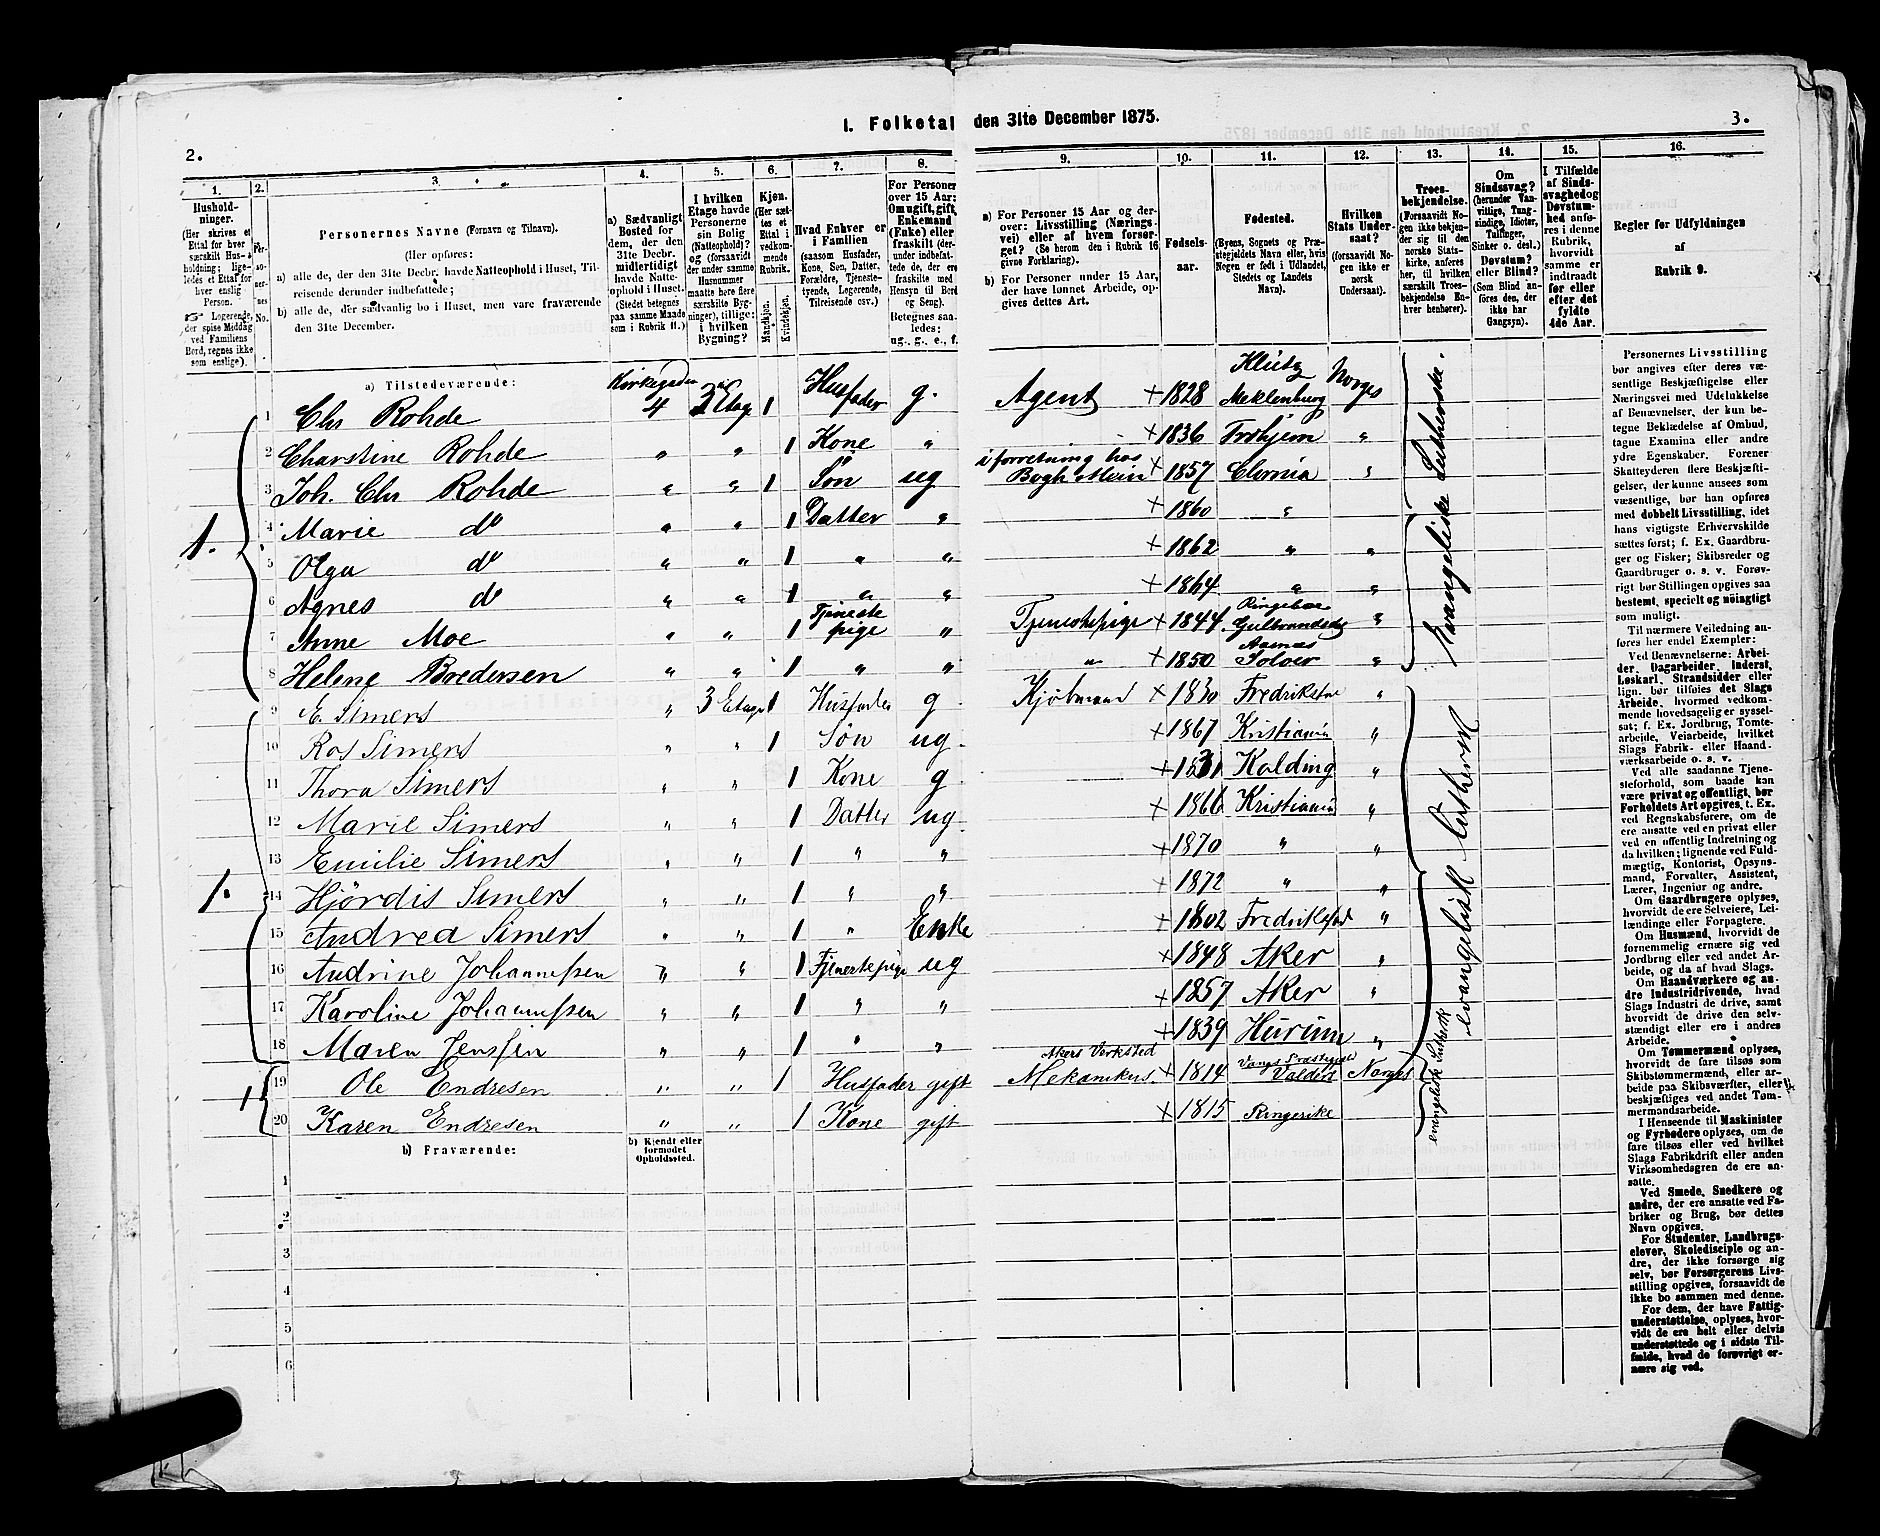 1. Folketal den 31te December 1875.
2.
3.
1. 2. 3. 4. 5. 6. 7. 8. 9. 10. 11. 12. 13. 14. 15. 16.
Husholdninger.
(Her skrives et Ettal for hver særskilt Husholdning; ligeledes et Ettal for hver enslig Person.
Logerende, der spise Middag ved Familiens Bord, regnes ikke som enslige).
Personernes No.
Personernes Navne (Fornavn og Tilnavn).
(Her opføres:
a) alle de, der den 31te Decbr. havde Natteophold i Huset, Tilreisende derunder indbefattede;
b) alle de, der sædvanlig bo i Huset, men vare fraværende den 31te December.
a) Sædvanligt Bosted for dem, der den 31te Decbr. midlertidigt havde Natteophold i Huset.
(Stedet betegnes paa samme Maade som i Rubrik 11.)
I hvilken Etage havde Personerne sin Bolig (Natteophold)? og (forsaavidt der under samme Husnummer maatte høre flere særskilte Bygninger), tillige: i hvilken Bygning?
Kjøn.
(Her sættes et Ettal i vedkommende Rubrik.
Mandkjøn. Kvindekjøn.
Hvad Enhver er i Familien
(saasom Husfader, Kone, Søn, Datter, Forældre, Tjenestetyende, Logerende, Tilreisende csv.)
For Personer over 15 Aar: Om ugift, gift, Enkemand (Enke) eller fraskilt (derindbefattede de, der ere fraskilte med Hensyn til Bord og Seng).
Betegnes saaledes: ug., g., e., f.
a) For Personer 15 Aar og derover: Livsstilling (Næringsvei) eller af hvem forsørget? (Se herom den i Rubrik 16 givne Forklaring).
b) For Personer under 15 Aar, der have lønnet Arbeide, opgives dettes Art.
Fødselsaar.
Fødested.
(Byens, Sognets og Præstegjeldets Navn eller, hvis Nogen er født i Udlandet, Stedets og Landets Navn).
Hvilken Stats Undersaat?
(forsaavidt Nogen ikke er norsk Undersaat).
Troesbekjendelse.
(Forsaavidt Nogen ikke bekjender sig til den norske Statskirke, anføres her, til hvilken særskilt Troesbekjendelse Enhver henhører).
Om Sindssvag? (herunder Vanvittige, Tungsindige, Idioter, Tullinger, Sinker o. desl.)
Døvstum? eller Blind?
(Som Blind anføres den, der ikke har Gangsyn).
I Tilfælde af Sindssvaghed og Døvstumhed anføres i denne Rubrik, hvorvidt samme er indtraadt før eller efter det fyldte 4de Aar.
Regler for Udfyldningen af Rubrik 9.
a) Tilstedeværende:
1. 1 Chr Rohde Kirkegaden 4 2 Etage 1 Husfader g. Agent + 1828 Klütz Meklenburg Norges
2 Charstine Rohde " " 1 Kone " + 1836 "
3 Joh. Chr Rohde " " 1 Søn ug i forretning hos + 1857 "
4 Marie do " " 1 Datter " + 1860 "
5 Olga do " " 1 " " + 1862 " "
6 Agnes do " " 1 " " + 1864 " "
7 Anne Moe " " 1 Tjenestepige " Tjenestepige + 1844 "
8 Helene Bredersen " " 1 " " " + 1850 Aasnæs Soloer "
Evangeliske Lutherske.
1. 9 E Simers " 3 Etage 1 Husfader g Kjøbmand + 1830 Fredrikstad "
10 Ros Simers " " 1 Søn ug. + 1867 Kristiania "
11 Thora Simers " " 1 Kone g + 1831 Kolding "
12 Marie Simers " " 1 Datter ug. + 1866 Kristiania "
13 Emilie Simers " " 1 " " + 1870 " "
14 Hjördis Simers " " 1 " " + 1872 " "
15 Andrea Simers " " 1 " Enke + 1802 Fredrikstad "
16 Andrine Johannesen " " 1 Tjenestepige ug + 1848 Aker "
17 Karoline Johannesen " " 1 " " + 1857 Aker "
18 Maren Jenssen " " 1 " " + 1839 Hurum "
evangelisk luthersk
1 19 Ole Endresen " " 1 Husfader gift Akers Verksted Mekanikus. + 1814 Valders Norges
20 Karen Endresen " " 1 Kone gift + 1815 Ringerike
evangelisk luthersk
b) Fraværende:
b) Kjendt eller formodet Opholdssted.
1
2
3
4
5
6
Personernes Livsstilling bør angives efter deres væsentlige Beskjæftigelse eller Næringsvei med Udelukkelse af Benævnelser, der kun betegne Beklædelse af Ombud, tagne Examina eller andre ydre Egenskaber. Forener Skatteyderen flere Beskjæftigelser, der kunne ansees som væsentlige, bør han opføres med dobbelt Livsstilling, idet hans vigtigste Erhvervskilde sættes først; f. Ex. Gaardbruger og Fisker; Skibsreder og Gaardbruger o. s. v. Forøvrigt bør Stillingen opgives saa bestemt, specielt og nöiagtigt som muligt.
Til nærmere Veiledning anføres her endel Exempler:
Ved Benævnelserne: Arbeider, Dagarbeider, Inderst, Løskarl, Strandsidder eller lign. bør tilføies det Slags Arbeide, hvormed vedkommende hovedsagelig er sysselsat; f. Ex. Jordbrug, Tomtearbeide, Veiarbeide, hvilket Slags Fabrik- eller Haandværksarbeide o. s. v.
Ved alle saadanne Tjenesteforhold, som baade kan være privat og offentligt, bør Forholdets Art opgives, t. Ex. ved Regnskabsførere, om de ere ansatte ved en privat eller ved en offentlig Indretning og da hvilken; lignende ved Fuldmægtig, Kontorist, Opsynsmand, Forvalter, Assistent, Lærer, Ingeniør og andre.
Om Gaardbrugere oplyses, hvorvidt de ere Selveiere, Leilændinge eller Forpagtere.
Om Husmænd, hvorvidt de fornemmelig ernære sig ved Jordbrug eller ved andet Arbeide, og da af hvad Slags.
Om Haandværkere og andre Industridrivende, hvad Slags Industri de drive, samt hvorvidt de drive den selvstændigt eller ere i andres Arbeide.
Om Tømmermænd oplyses, hvorvidt de fare tilsøs som Skibstømmermænd, eller arbeide paa Skibsværfter, eller beskjæftiges ved andet Tømmermandsarbeide.
I Henseende til Maskinister og Fyrbødere oplyses, om de fare tilsøs eller ved hvilket Slags Fabrikdrift eller anden Virksomhedsgren de ere ansatte.
Ved Smede, Snedkere og andre, der ere ansatte ved Fabriker og Brug, bør dettes Navn opgives.
For Studenter, Landbrugselever, Skoledisciple og andre, der ikke forsørge sig selv, bør Forsørgerens Livsstilling opgives, forsaavidt de ikke bo sammen med denne.
For dem, der have Fattigunderstøttelse, oplyses, hvorvidt de ere helt eller delvis understøttede og i sidste Tilfælde, hvad de forøvrigt ernære sig ved.